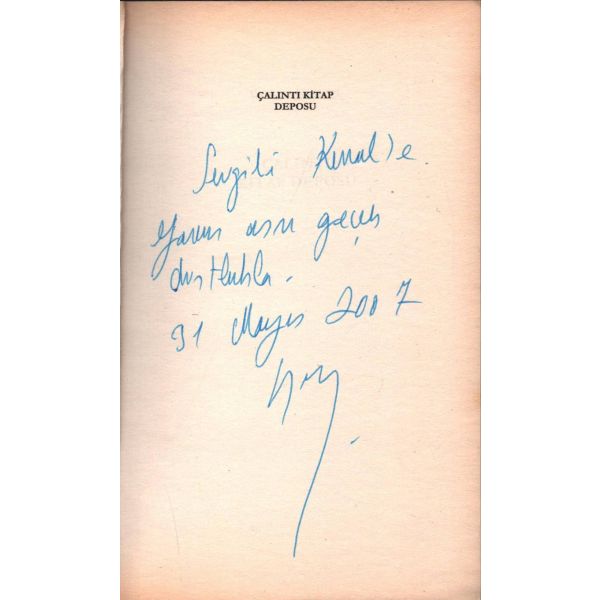 ÇALINTI KİTAP
DEPOSU
Sevgili Kemal'e.
Yarım asrı geçen
dostlukla.
31 Mayıs 2007